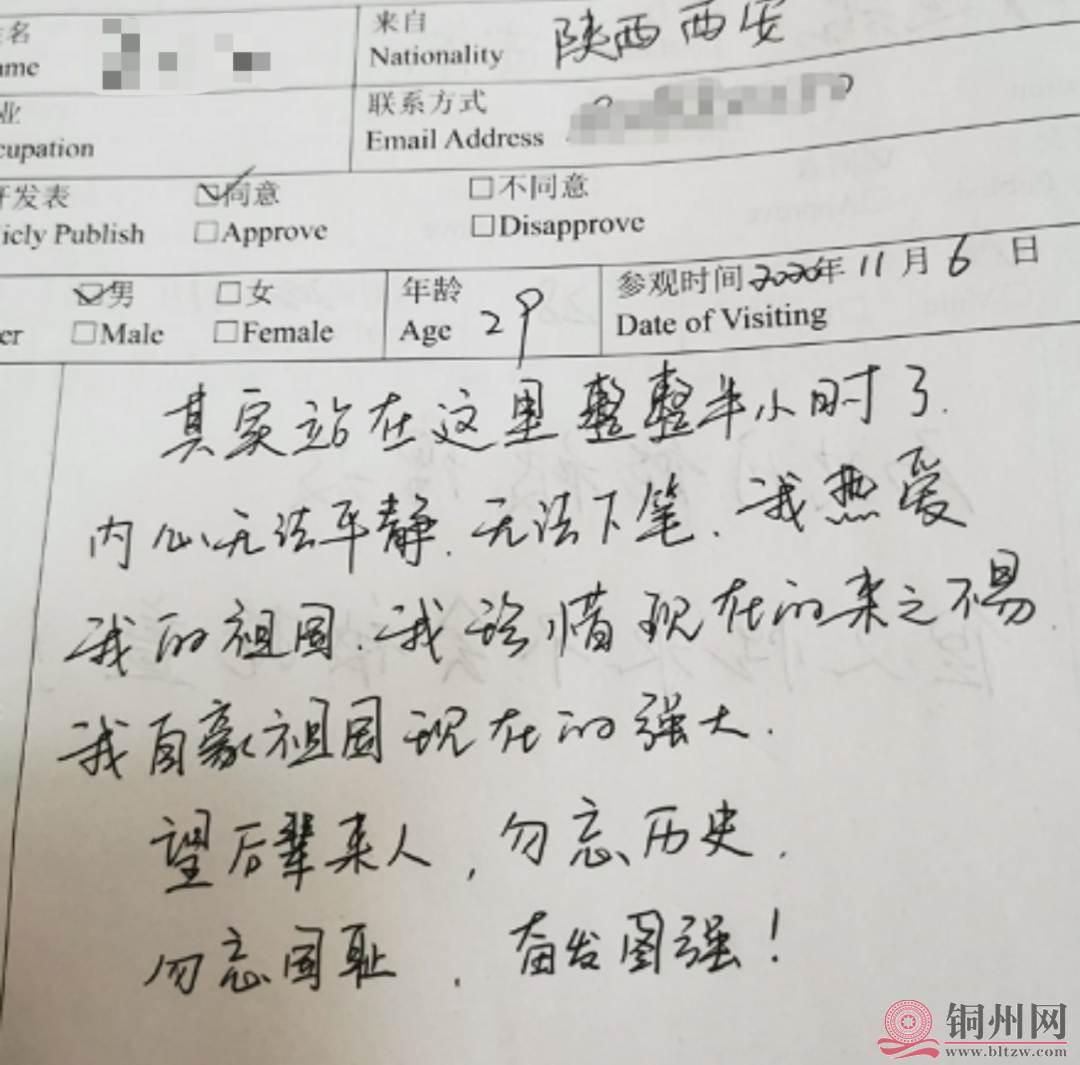 姓名 来自 陕西西安
ame Nationality
业 联系方式
cupation Email Address
开发表 同意 不同意
icly Publish Approve Disapprove
男 女 年龄 29 参观时间 2020年 11 月 6 日
er Male Female Age Date of Visiting
其实站在这里整整半小时了.
内心无法平静.无法下笔.我热爱
我的祖国.我珍惜现在的来之不易
我自豪祖国现在的强大.
望后辈来人,勿忘历史.
勿忘国耻.奋发图强!
铜州网
www.bltzw.com